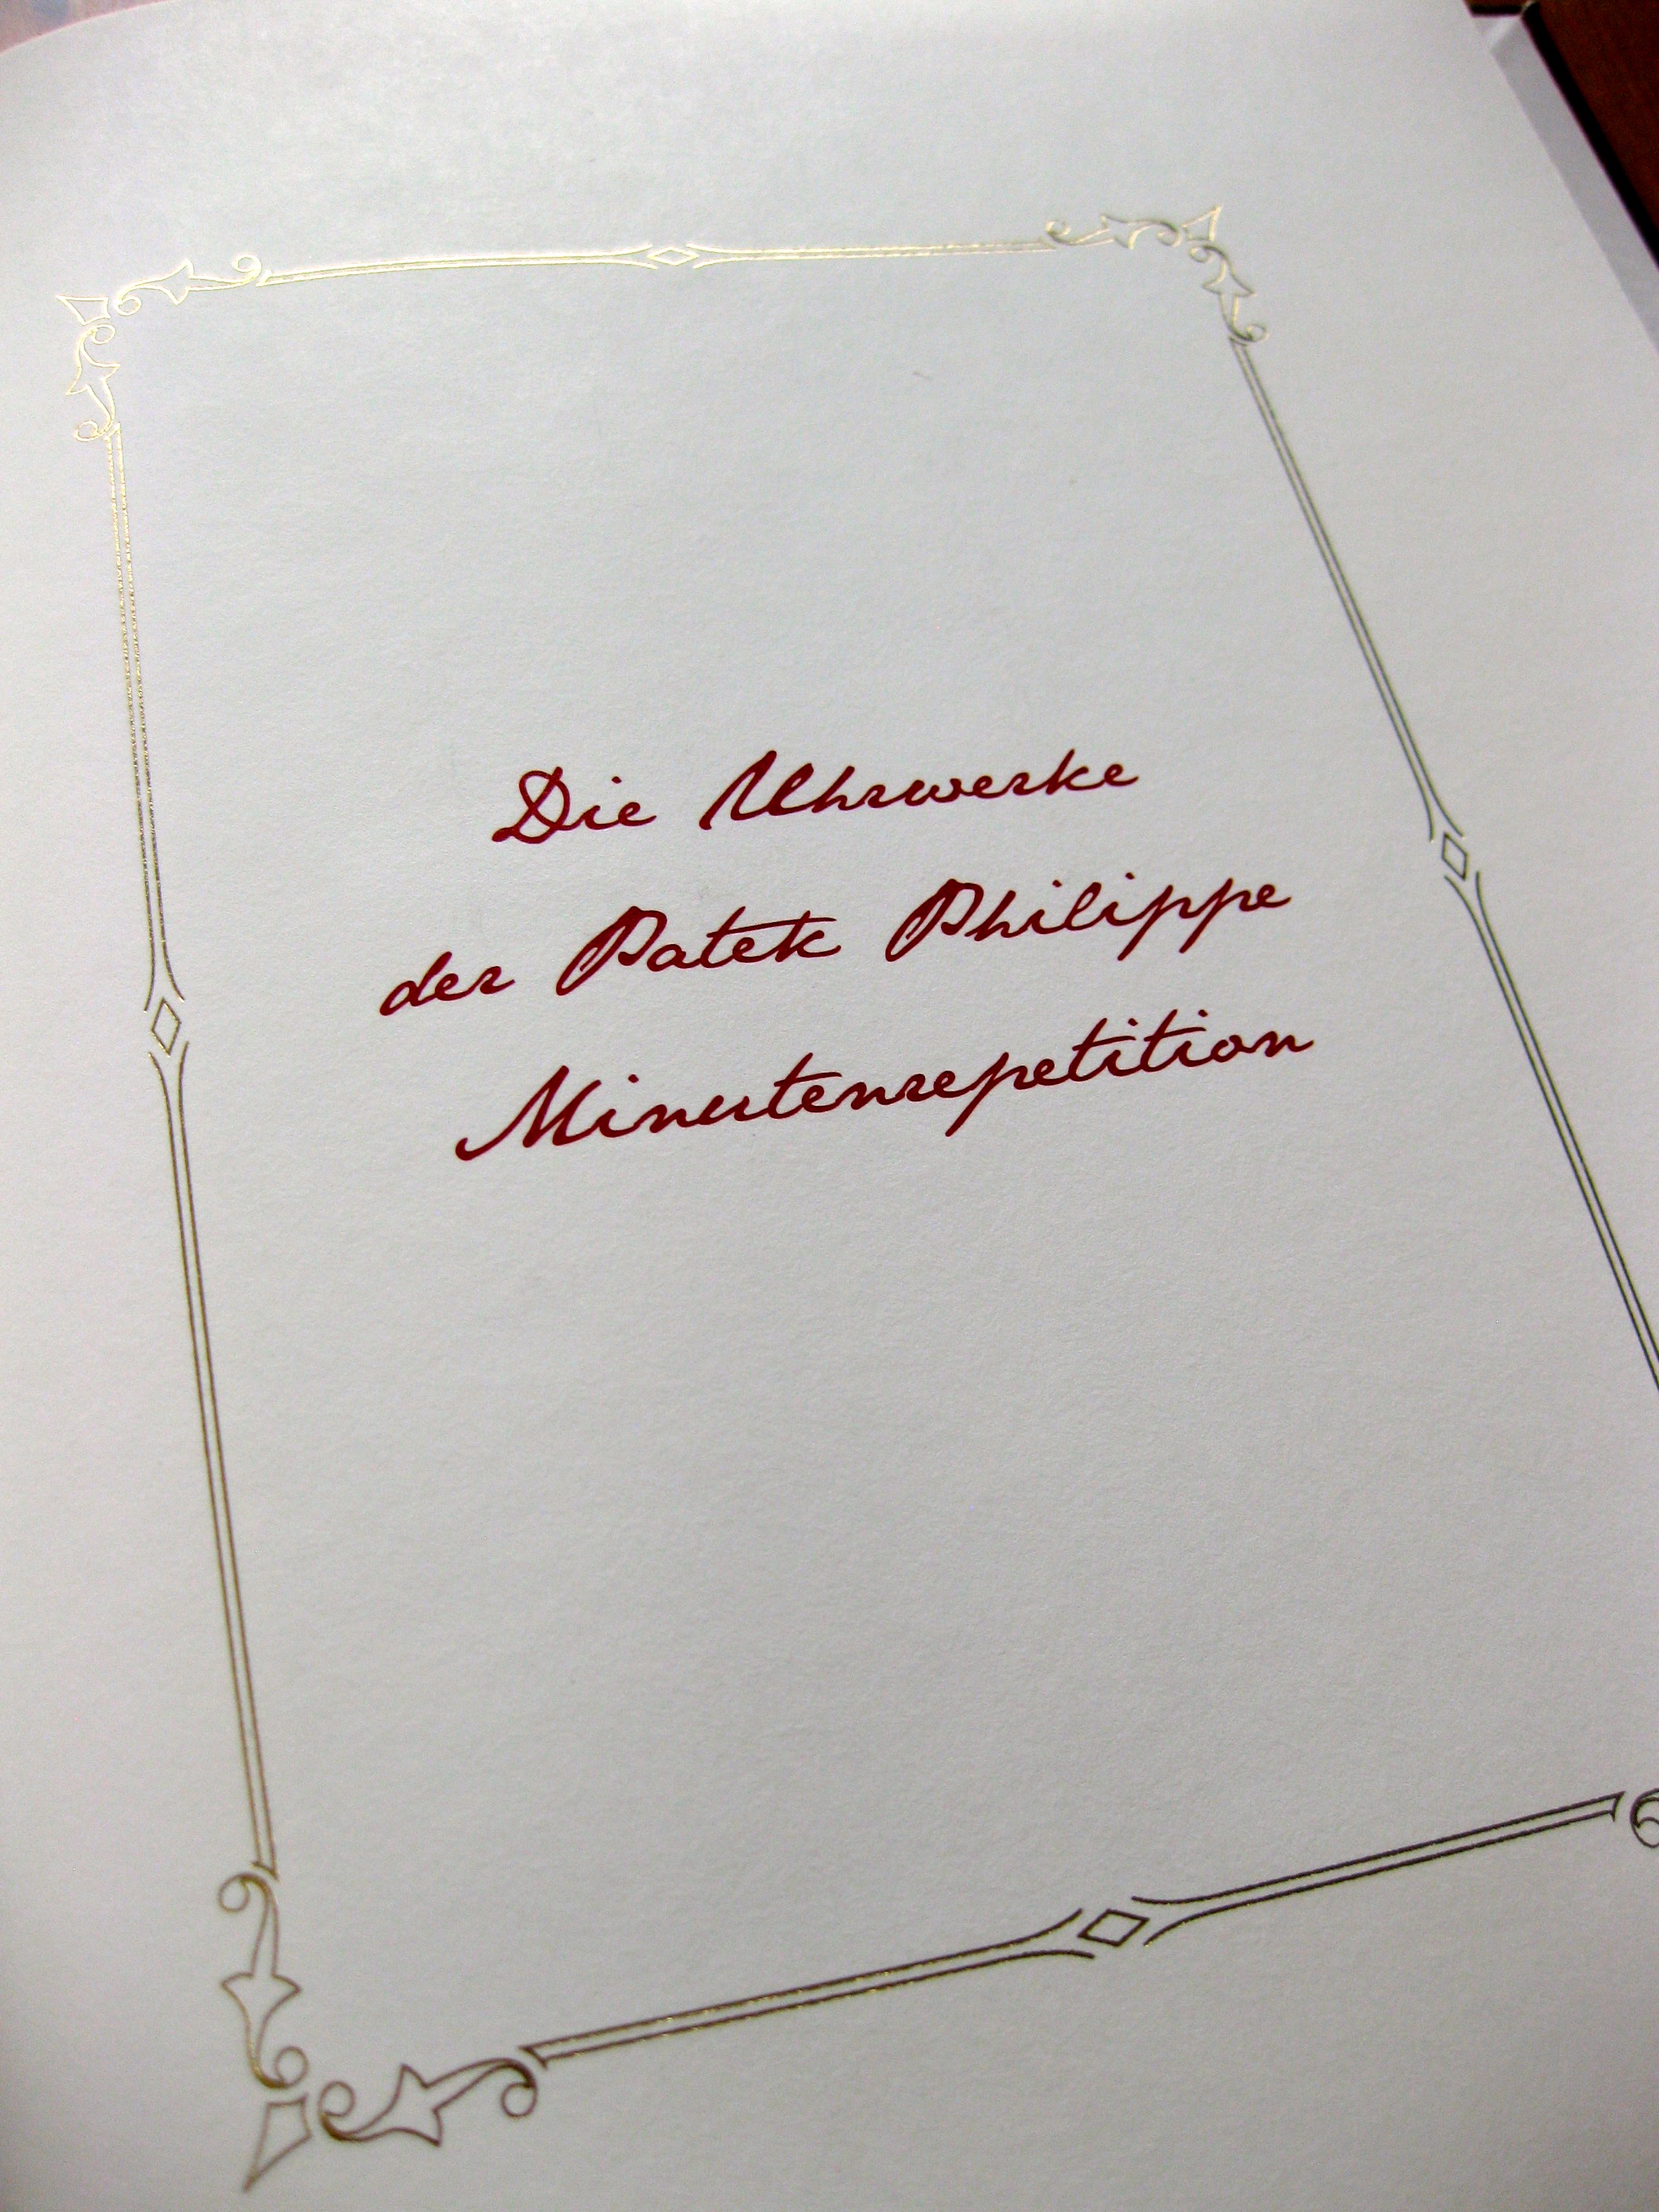 Die Uhrwerke
der Patek Philippe
Minutenrepetition